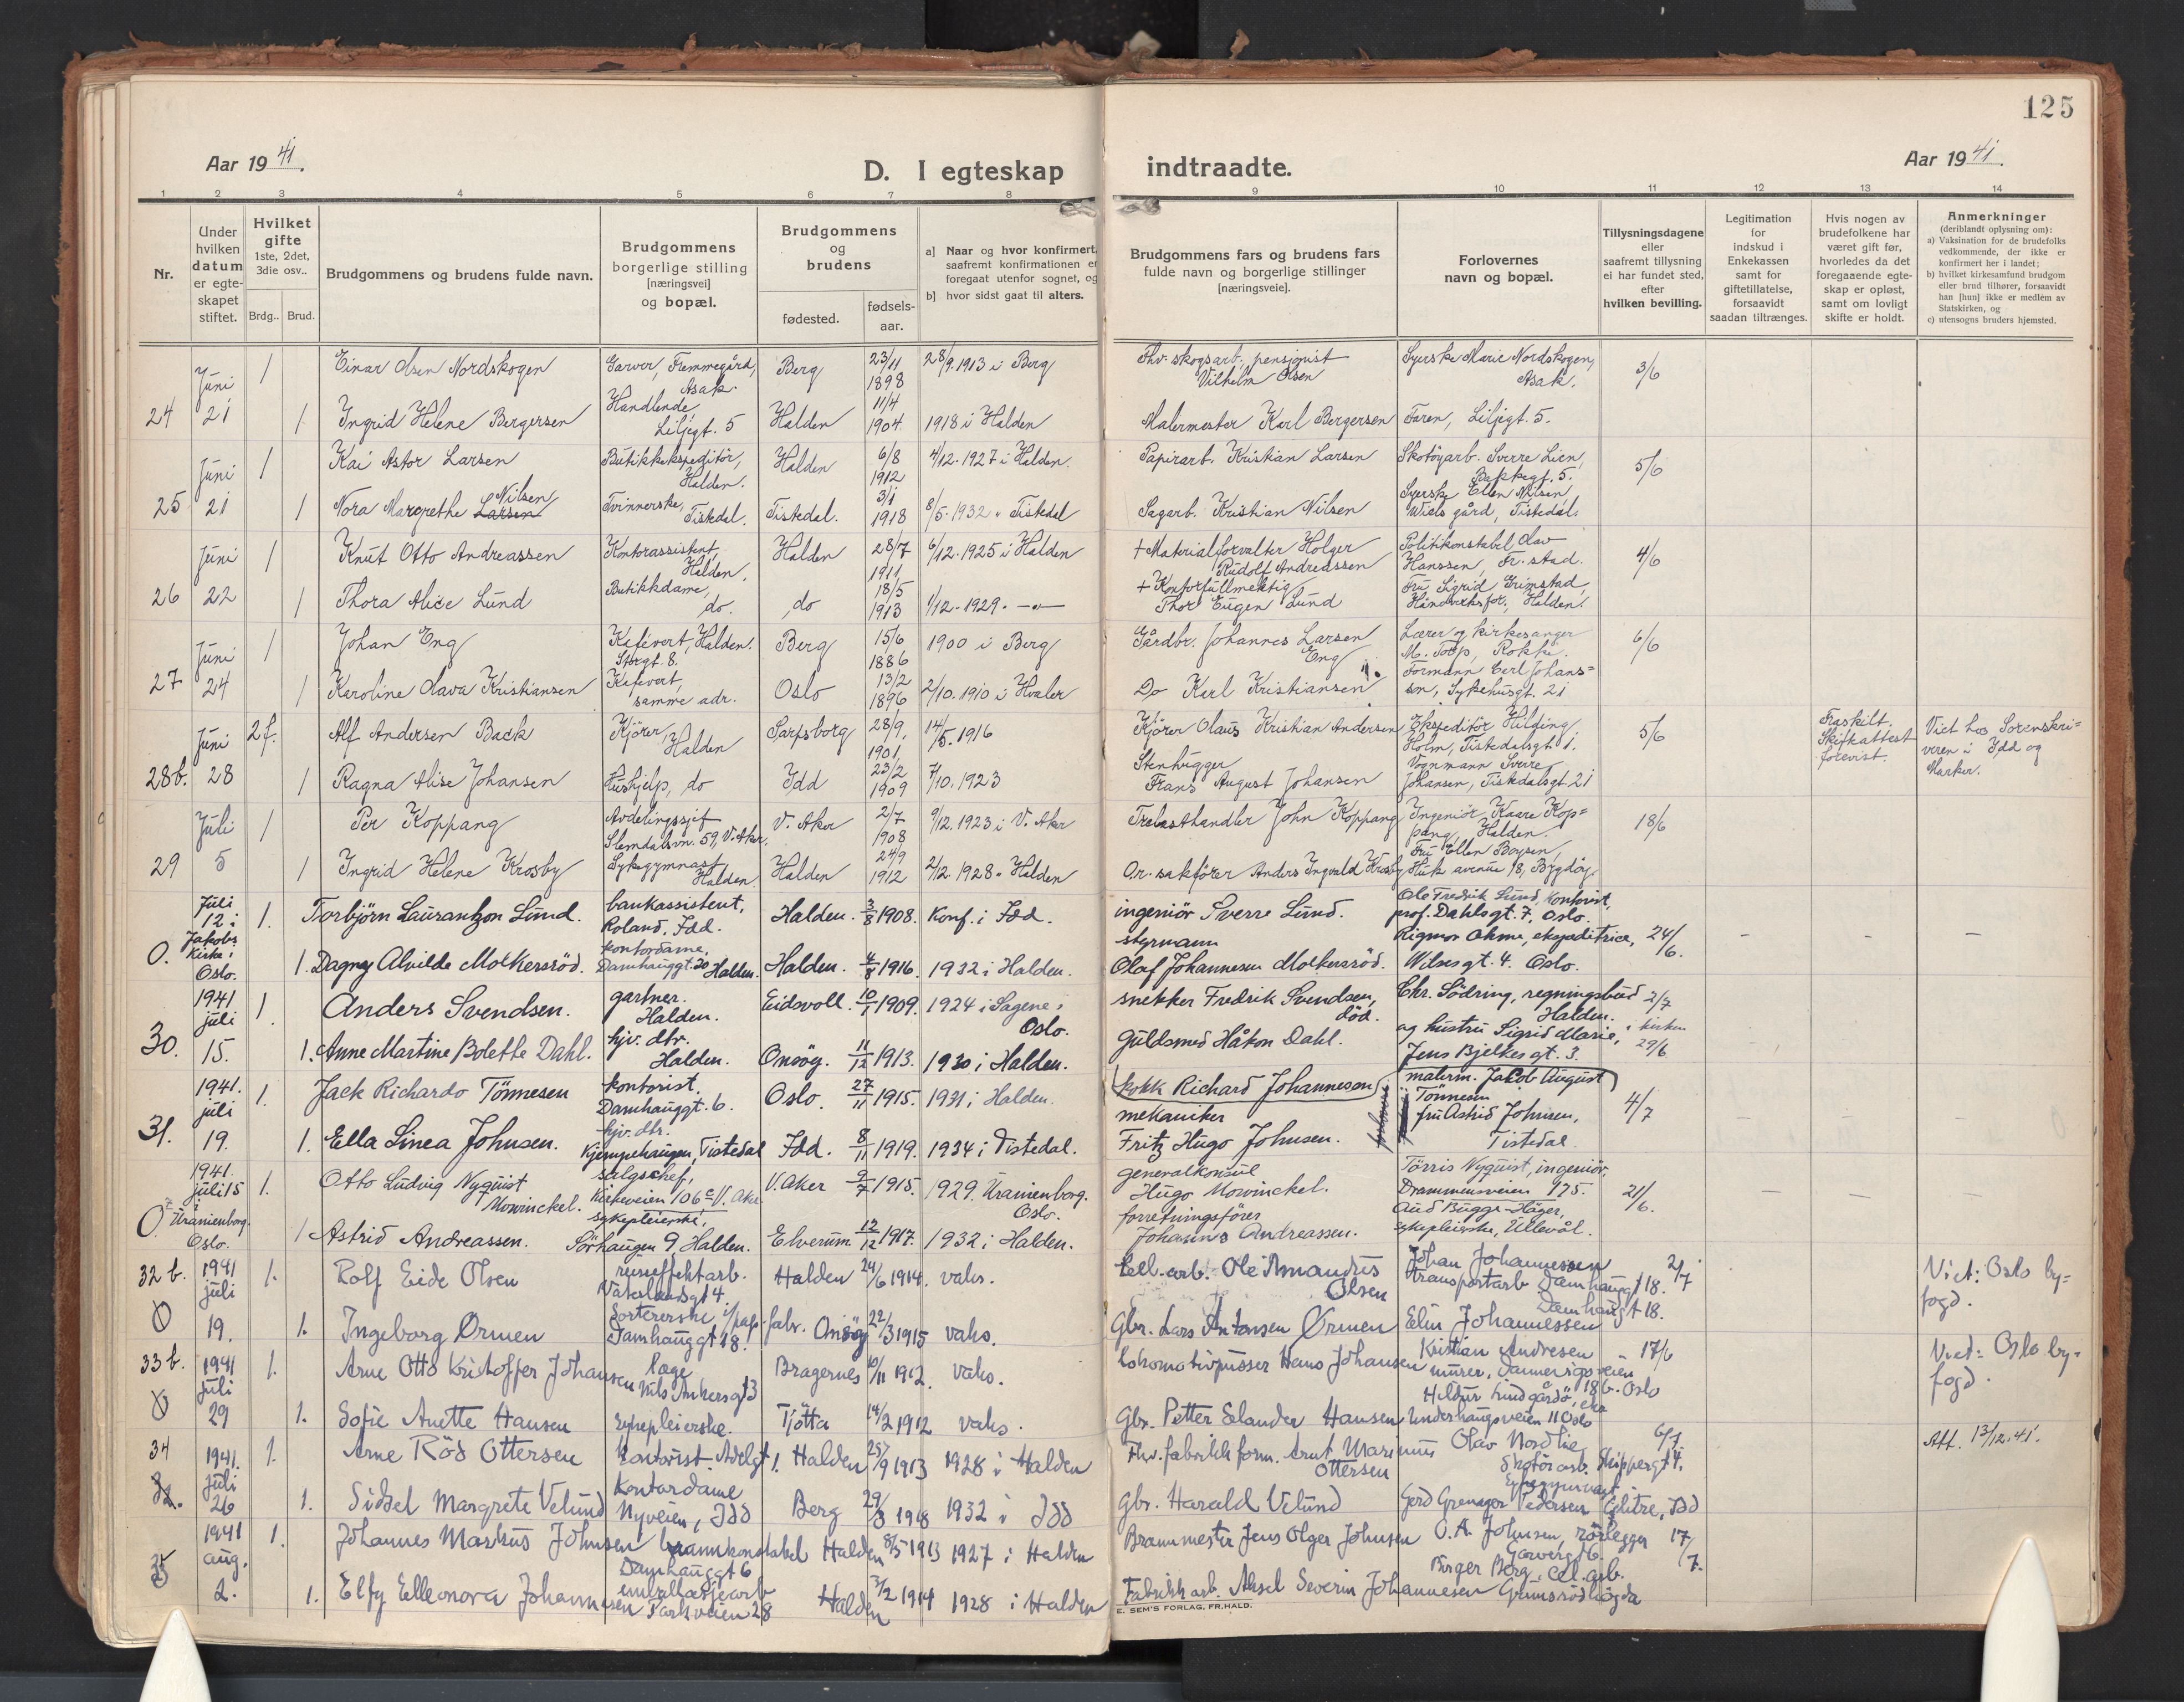 125
Aar 1941.
D. I egteskap indtraadte.
Aar 1941.
1 2 3 4 5 6 7 8 9 10 11 12 13 14
Nr.
Under hvilken datum er egteskapet stiftet.
Hvilket gifte 1ste, 2det, 3die osv..
Brdg.. Brud.
Brudgommens og brudens fulde navn.
Brudgommens borgerlige stilling [næringsvei] og bopæl.
Brudgommens og brudens
fødested. fødselsaar.
a] Naar og hvor konfirmert, saafremt konfirmationen er foregaat utenfor sognet, og
b] hvor sidst gaat til alters.
Brudgommens fars og brudens fars fulde navn og borgerlige stillinger [næringsveie].
Forlovernes navn og bopæl.
Tillysningsdagene eller saafremt tillysning ei har fundet sted, efter hvilken bevilling.
Legitimation for indskud i Enkekassen samt for giftetillatelse, forsaavidt saadan tiltrænges.
Hvis nogen av brudefolkene har været gift før, hvorledes da det foregaaende egteskap er opløst, samt om lovligt skifte er holdt.
Anmerkninger (deriblandt oplysning om):
a) Vaksination for de brudefolks vedkommende, der ikke er konfirmert her i landet;
b) hvilket kirkesamfund brudgom eller brud tilhører, forsaavidt han [hun] ikke er medlem av Statskirken, og
c) utensogns bruders hjemsted.
24 Juni 21 1 Einar Olsen Nordskogen Garver, Femmegård, Asak. Berg 23/11 1898 28/9.1913 i Berg Fhv. skogsarb., pensjonist Vilhelm Olsen Syerske Marie Nordskogen, Asak. 3/6
1 Ingrid Helene Bergersen Handlende, Liljegt. 5 Halden 11/4 1904 1918 i Halden Malermester Karl Bergersen Faren, Liljegt. 5.
25 Juni 21 1 Kai Astor Larsen Butikkekspeditör, Halden. Halden 6/8 1912 4/12.1927 i Halden. Papirarb. Kristian Larsen Skotöyarb. Sverre Lien, Bakkegt. 5. 5/6
1 Nora Margrethe Larsen Nilsen Tvinnerske, Tistedal. Tistedal. 3/1 1918 8/5.1932 " Tistedal Sagarb. Kristian Nilsen Syerske Ellen Nilsen, Wiels gård, Tistedal.
26 Juni 22 1 Knut Otto Andreassen Kontorassistent, Halden. Halden 28/7 1911 6/12.1925 i Halden + Materialforvalter Holger Rudolf Andreassen Politikonstabel Olav Hanssen, Fr.stad. 4/6
1 Thora Alice Lund Butikkdame, do. do 18/5 1913 1/12.1929. —"— + Kontorfullmektig Thor Eugen Lund Fru Sigrid Grimstad, Håndverksfor., Halden.
27 Juni 24 1 Johan Eng Kafévert, Halden. Storgt. 8. Berg 15/6 1886 1900 i Berg Gårdbr. Johannes Larsen Eng Lærer og kirkesanger M. Torp, Rokke. 6/6
1 Karoline Olava Kristiansen Kafévert, samme adr. Oslo 13/2 1896 2/10.1910 i Hvaler Do Karl Kristiansen Formann Carl Johansson, Sykehusgt. 21
28b. Juni 28 2f. Alf Andersen Back Kjörer, Halden Sarpsborg 28/9. 1901 14/5.1916 Kjörer Olaus Kristian Andersen Ekspeditör Hilding Holm, Tistedalsgt. 1. 5/6 Fraskilt. Skifteattest forevist. Viet hos Sorenskriveren i Idd og Marker.
1 Ragna Alise Johansen Hushjelp, do Idd 23/2 1909 7/10.1923 Stenhugger Frans August Johansen Vognmann Sverre Johansen, Tistedalsgt 21
29 Juli 5 1 Per Koppang Avdelingssjef Slemdalsvn. 59, V. Aker. V. Aker 2/7 1908 9/12.1923 i V. Aker Trelasthandler John Koppang Ingeniör Kaare Koppang, Halden. 18/6
1 Ingrid Helene Krosby Sykegymnast, Halden. Halden 24/9 1912 2/12.1928 " Halden O.r.sakförer Anders Ingvald Krosby Fru Ellen Boysen, Huk avenue 18, Bygdöy
0. Juli 12 i Jakobs Kirke: Oslo. 1. Torbjörn Laurantzon Lund. bankassistent, Roland, Idd. Halden. 3/8 1908. Konf. i Idd. ingeniör Sverre Lund. Ole Fredrik Lund, kontorist, prof. Dahlsgt. 7, Oslo. 24/6. — — —
1. Dagny Alvilde Molkersröd. kontordame, Damhauggt. 20 Halden. Halden. 4/8 1916. 1932 i Halden. styrmann Olaf Johannesen Molkersröd. Rigmor Ohme, ekspeditrice, Wilsesgt. 4. Oslo.
30. 1941 juli 15. 1. Anders Svendsen. gartner. Halden. Eidsvoll. 10/1 1909. 1924 i Sagene, Oslo. snekker Fredrik Svendsen, död. Chr. Södring, regningsbud Halden. 2/7 i kirken 29/6
1. Anne Martine Bolette Dahl. hjv. dtr. Halden. Onsöy. 11/12 1913. 1930 i Halden. Guldsmed Håkon Dahl. og hustru Sigrid Marie, Jens Bjelkes gt. 3.
31. 1941. juli 19. 1. Jack Richardo Tönnesen kontorist, Damhauggt. 6. Oslo. 27/11 1915. 1931 i Halden. kokk Richard Johannesen malerm. Jakob August Tönnesen 4/7 —
1. Ella Linea Johnsen. hjv. dtr. Kjempehaugen, Tistedal Idd. 8/11 1919. 1934 i Tistedal. mekaniker Fritz Hugo Johnsen. fru Astrid Johnsen, Tistedal.
0. 1941. juli 15 Uranienborg. Oslo. 1. Otto Ludvig Nyquist Mowinckel. salgschef, Kirkeveien 106c V. Aker V. Aker 9/7 1915. 1929. Uranienborg. Oslo. generalkonsul Hugo Mowinckel. Törris Nyquist, ingeniör, Drammensveien 175. 21/6. — — —
1 Astrid Andreassen. sykepleierske, Sörhaugen 9, Halden. Elverum. 12/12 1917. 1932 i Halden. forretningsförer Johannes Andreassen. Aud Bugge-Höyer, sykepleierske, Ullevål.
32 b. 1941 juli 19. 1. Rolf Eide Olsen reiseeffektarb. Vaterlandsgt 4. Halden 24/6 1914. vaks. Cell.-arb. Ole Amandus Olsen Johan Johannessen transportarb Damhauggt 18. 2/7 Viet: Oslo byfogd.
1. Ingeborg Ørmen Sortererske i/pap. fabr. Damhauggt 18. Onsöy 22/3 1915 vaks. Gbr. Lars Antonsen Ørmen Elin Johannessen Damhauggt 18.
33 b. 1941 juli 29 1. Arne Otto Kristoffer Johansen Nils Ankersgt 3 Bragernes 10/11 1912. vaks. Lokomotivpusser Hans Johansen Kristian Andresen murer, 18b. Oslo 17/6 Viet: Oslo byfogd.
1. Sofie Anette Hansen Sykepleierske. Tjötta 14/2 1912 vaks. Gbr. Petter Elander Hansen Underhaugsveien 11 Oslo
34 1941. juli 26 1. Arne Röd Ottersen Kontorist Adelgt 1. Halden 25/9 1913 1928 i Halden Fhv. fabrikkform. Arnt Marinius Ottersen Olav Nordlie, Skotöiarb. Skippergt 4. 6/7 Att. 13/12.41.
1. Sidsel Margrete Velund Kontordame Nyveien, Idd Berg 29/8 1918 1932 i Idd Gbr. Harald Velund Gerd Grenager Pedersen Idd
35 1941 aug. 2. 1. Johannes Markus Johnsen brannkonstabel Damhauggt 6 Halden 8/5 1913 1927 i Halden Brannmester Jens Olger Johnsen O. A. Johnsen, rörlegger Garvergt 6. 17/7.
1. Elfy Elleonora Johannesen emballasjearb Parkveien 28 Halden 3/2 1914 1928 i Halden Fabrikkarb. Aksel Severin Johannesen Birger Berg, cel.arb. Grimsrödhögda
E. SEM'S FORLAG, FR.HALD.